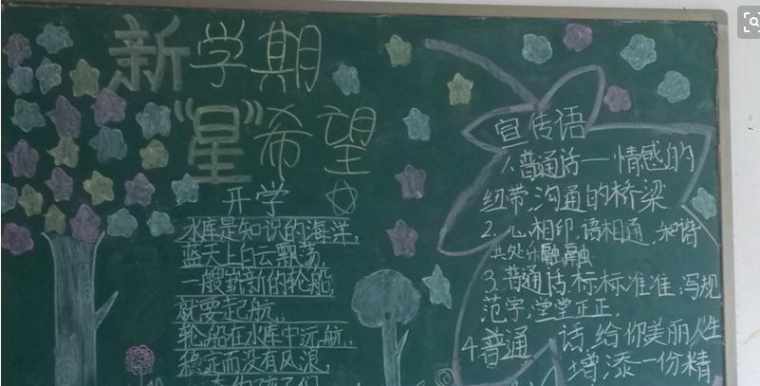 新学期
"星"希望
开学
水库是知识的海洋,
蓝天上白云飘荡,
一艘崭新的轮船,
就要起航。
轮船在水库中远航,
稳定而没有风浪,
宣传语
1.普通话——情感的
纽带,沟通的桥梁
2.心相印,语相通,和谐
共处乐融融
3.普通话标标准准,写规
范字,堂堂正正.
4普通 话,给你美丽人生
增添一份精